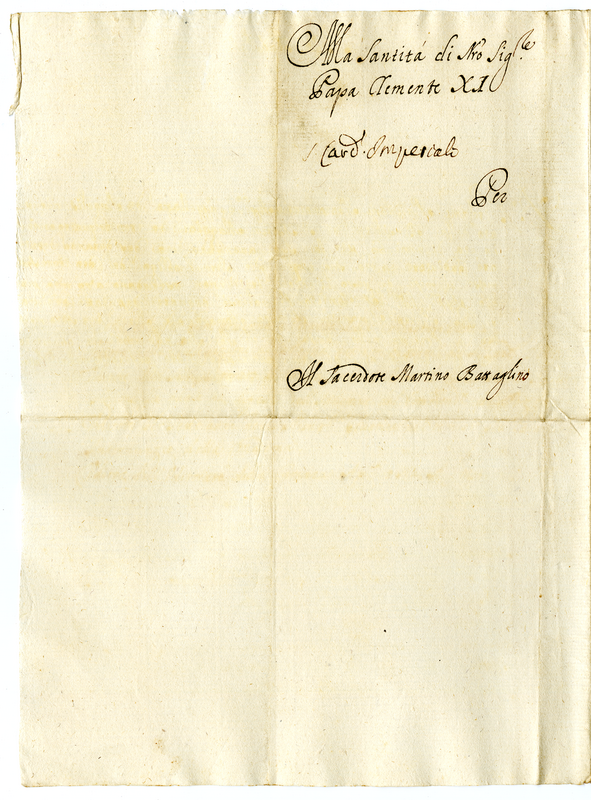 Alla Santità di Nro Sig.re
Papa Clemente XI
Card. Imperiale
Per
Il Sacerdote Martino Battaglino